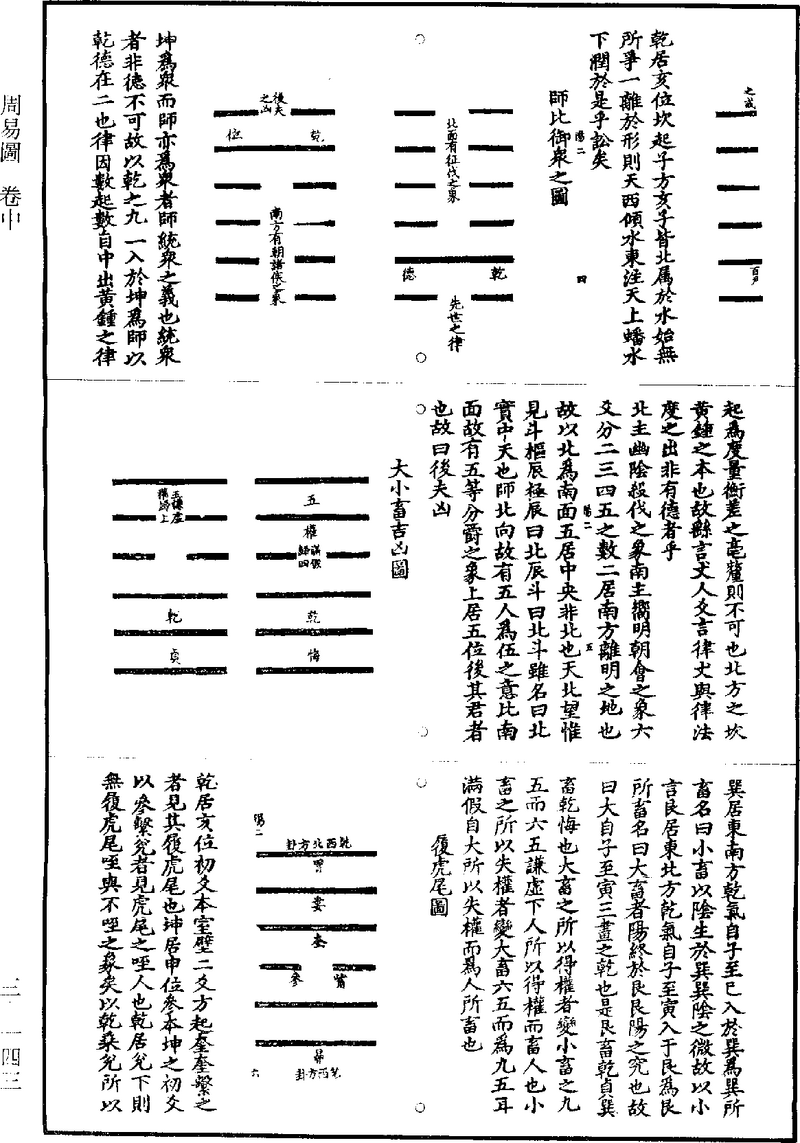 周易圖 卷中
三一四三
之成
百戶
乾居亥位坎起子方亥子皆北属於水始無
所爭一離於形則天西傾水東注天上蟠水
下潤於是乎訟矣
陽二
四
師比御衆之圖
北面有征伐之象
乾
德
先世之律
後夫之凶
乾
位
南方有朝諸侯之象
坤爲衆而師亦爲衆者師統衆之義也統衆
者非德不可故以乾之九一入於坤爲師以
乾德在二也律因數起數自中出黃鍾之律
起爲度量衡差之毫釐則不可也北方之坎
黃鍾之本也故繇言丈人爻言律丈與律法
度之出非有德者乎
北主幽陰殺伐之象南主嚮明朝會之象六
爻分二三四五之數二居南方離明之地也
陽二
五
故以北爲南面五居中央非北也天北望惟
見斗樞辰極辰曰北辰斗曰北斗雖名曰北
實中天也師北向故有五人爲伍之意比南
面故有五等分爵之象上居五位後其君者
也故曰後夫凶
大小畜吉凶圖
五
權
乾
悔
五謙虛
權歸上
乾
貞
巽居東南方乾氣自子至巳入於巽爲巽所
畜名曰小畜以陰生於巽巽陰之微故以小
言艮居東北方乾氣自子至寅入于艮爲艮
所畜名曰大畜者陽終於艮艮陽之究也故
曰大自子至寅三畫之乾也是艮畜乾貞巽
畜乾悔也大畜之所以得權者變小畜之九
五而六五謙虛下人所以得權而畜人也小
畜之所以失權者變大畜六五而爲九五耳
滿假自大所以失權而爲人所畜也
履虎尾圖
陽二
六
乾西北方卦
胃
婁
奎
觜
參
昴
兌西方卦
乾居亥位初爻本室壁二爻方起奎奎繫之
者見其履虎尾也坤居申位參本坤之初爻
以參繫兌者見虎尾之咥人也乾居兌下則
無履虎尾咥與不咥之象矣以乾乘兌所以